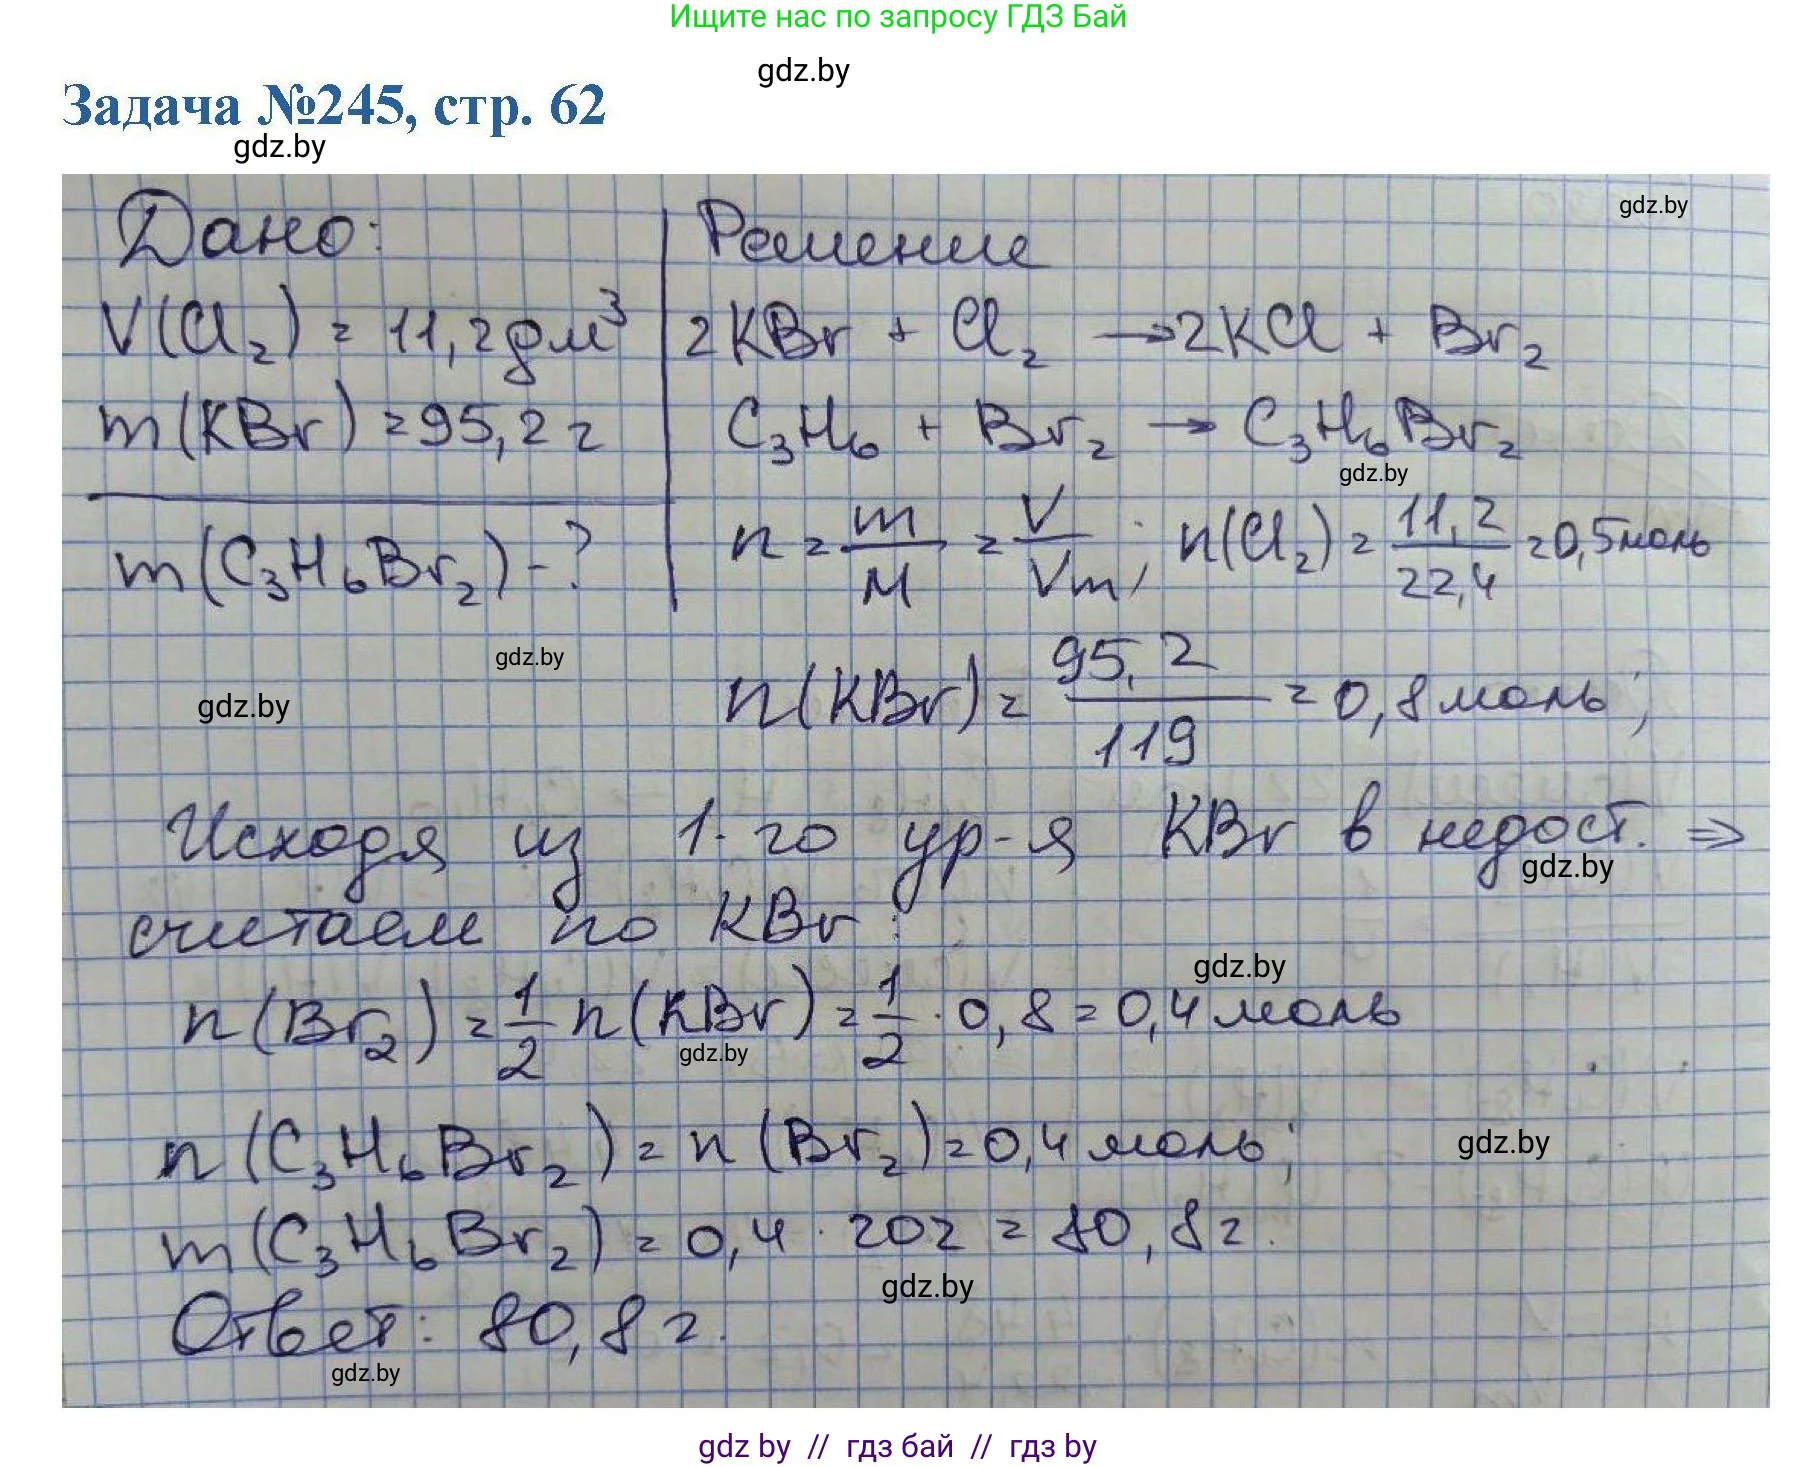 Ищите нас по запросу ГДЗ Бай
gdz.by
Задача №245, стр. 62
gdz.by
Дано:
V(Cl₂) = 11,2 дм³
m(KBr) = 95,2 г
m(C₃H₆Br₂) - ?
gdz.by
gdz.by
Решение
gdz.by
2KBr + Cl₂ → 2KCl + Br₂
C₃H₆ + Br₂ → C₃H₆Br₂
gdz.by
n = m/M = V/Vm; n(Cl₂) = 11,2/22,4 = 0,5 моль
n(KBr) = 95,2/119 = 0,8 моль;
Исходя из 1-го ур-я KBr в недост. ⇒
gdz.by
считаем по KBr:
gdz.by
n(Br₂) = 1/2 n(KBr) = 1/2 · 0,8 = 0,4 моль
gdz.by
n(C₃H₆Br₂) = n(Br₂) = 0,4 моль;
gdz.by
m(C₃H₆Br₂) = 0,4 · 202 = 80,8 г.
gdz.by
Ответ: 80,8 г.
gdz.by
gdz by // гдз бай // гдз by